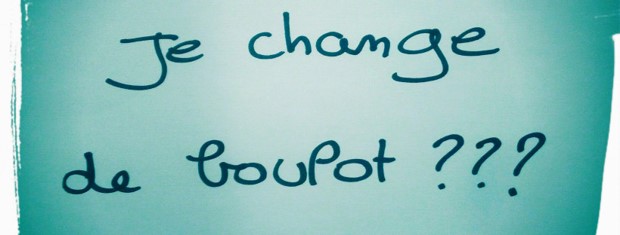 Je change
de boulot ???